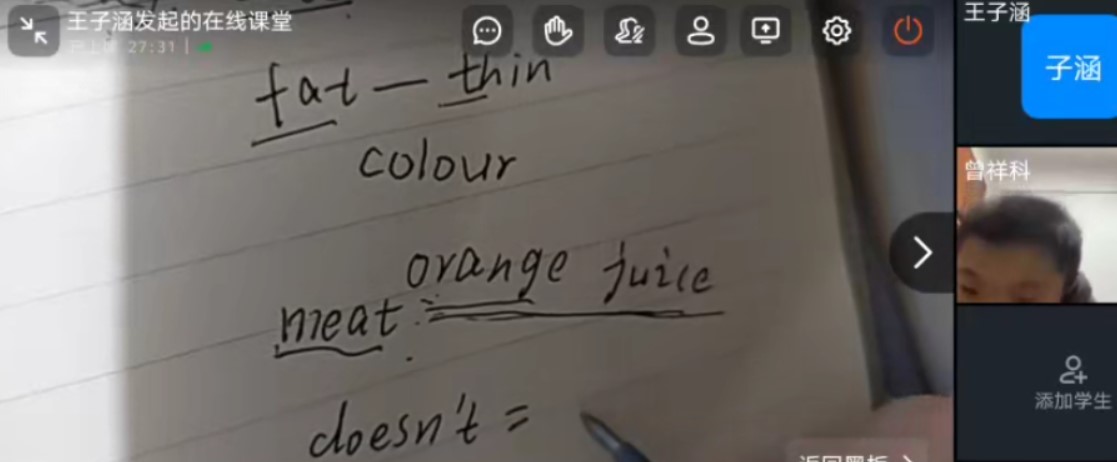 王子涵发起的在线课堂
27:31
王子涵
子涵
fat — thin
曾祥科
colour
orange juice
meat
添加学生
doesn't =